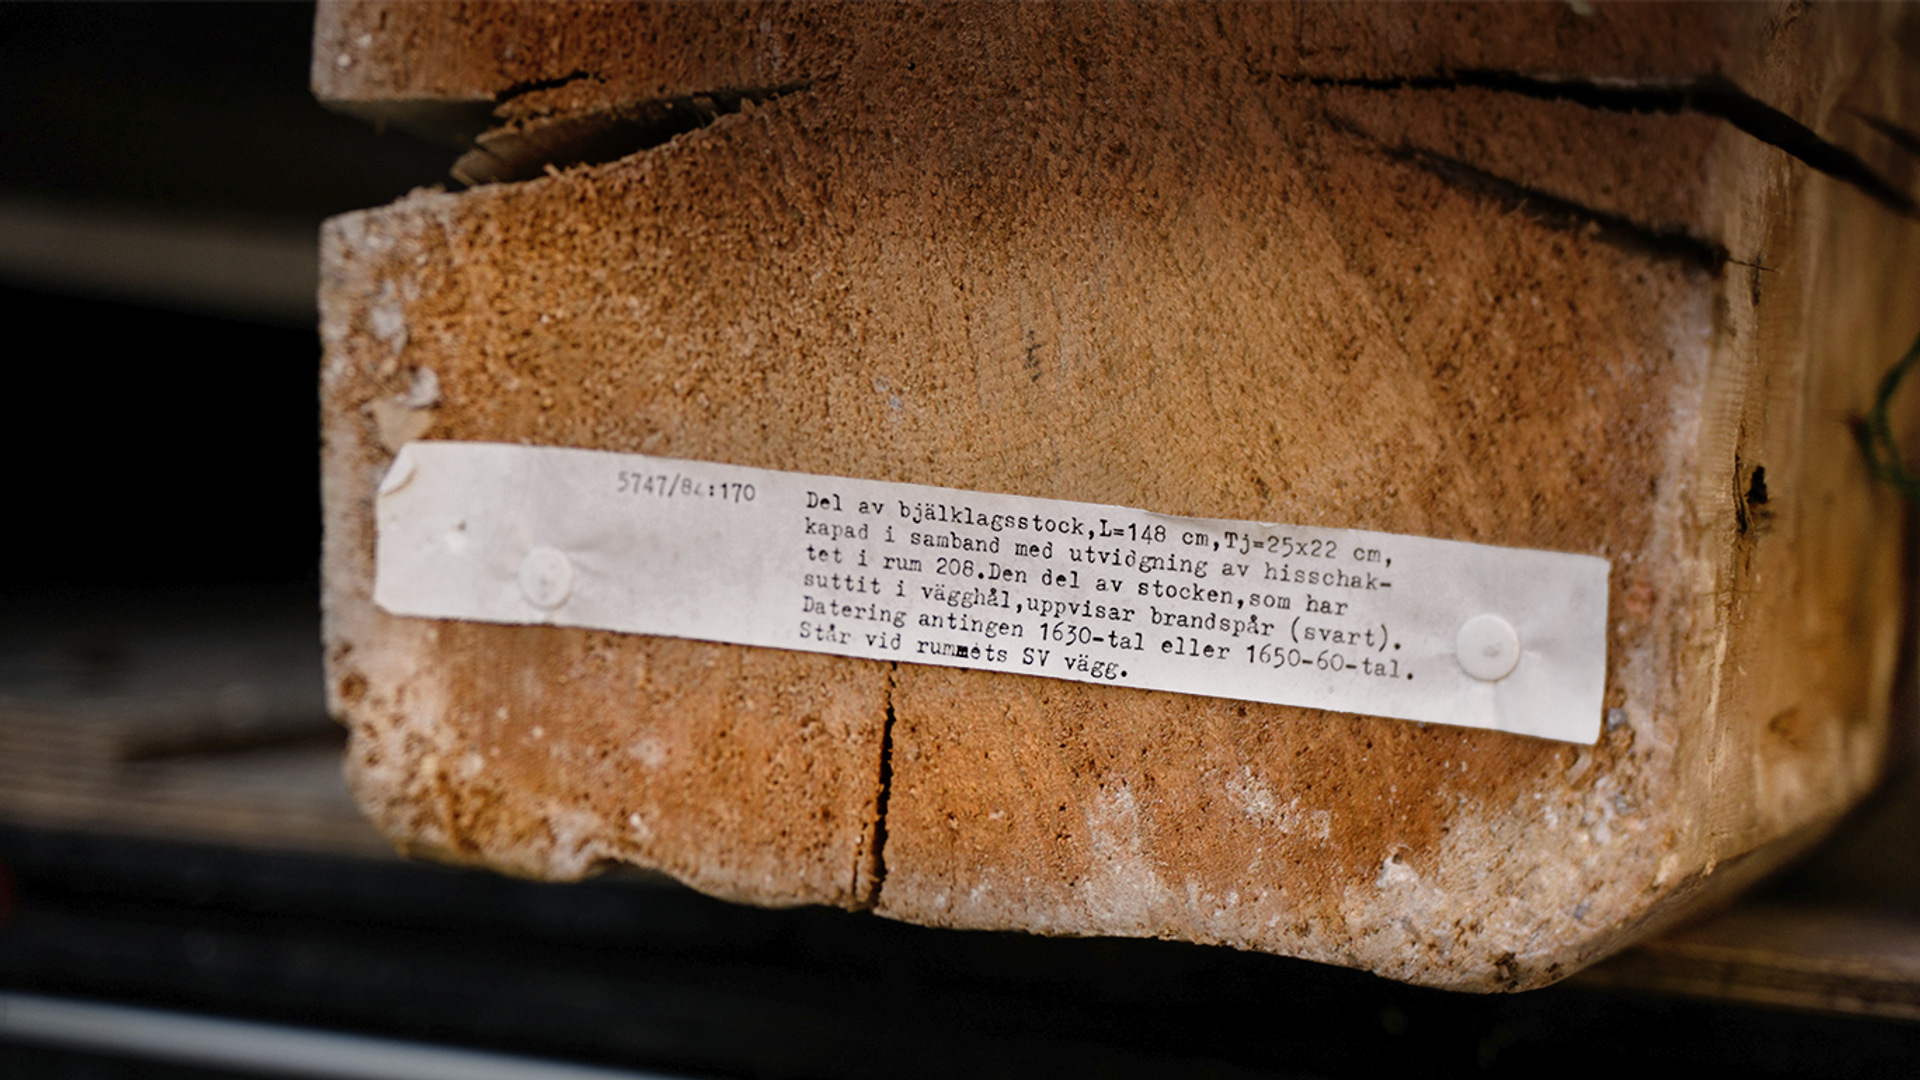 5747/84:170 Del av bjälklagsstock,L=148 cm,Tj=25x22 cm,
kapad i samband med utvidgning av hisschak-
tet i rum 208.Den del av stocken,som har
suttit i vägghål,uppvisar brandspår (svart).
Datering antingen 1630-tal eller 1650-60-tal.
Står vid rummets SV vägg.